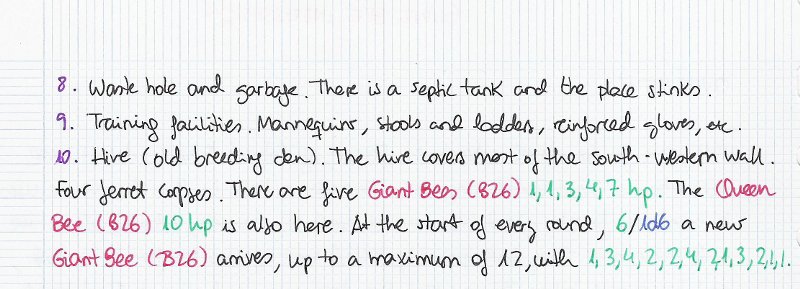 8. Waste hole and garbage. There is a septic tank and the place stinks.
9. Training facilities. Mannequins, stools and ladders, reinforced gloves, etc.
10. Hive (old breeding den). The hive covers most of the south-western wall.
Four ferret corpses. There are five Giant Bees (B26) 1, 1, 3, 4, 7 hp. The Queen
Bee (B26) 10 hp is also here. At the start of every round, 6/1d6 a new
Giant Bee (B26) arrives, up to a maximum of 12, with 1, 3, 4, 2, 2, 4, 2, 1, 3, 2, 1, 1.